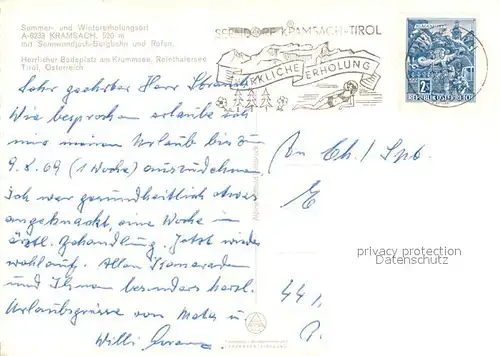 Sommer- und Wintererholungsort
A-6233 KRAMSACH, 520 m
mit Sonnwendjoch-Bergbahn und Rofan,
Herrlicher Badeplatz am Krummsee, Reinthalersee
Tirol, Österreich
SEENDORF KRAMSACH-TIROL
WIRKLICHE ERHOLUNG
2S
REPUBLIK ÖSTERREICH
Sehr geehrter Herr
Wie besprochen erlaube ich
mir meinen Urlaub bis zum
9.8.69 (1 Woche) auszudehnen.
Ich war gesundheitlich etwas
angeknackt, eine Woche in
ärztl. Behandlung. Jetzt wieder
wohlauf. Allen Kameraden
und Ihnen besonders herzl.
Urlaubsgrüsse von u.
Willi
An Ch/ Spb.
E
44/
privacy protection watermark